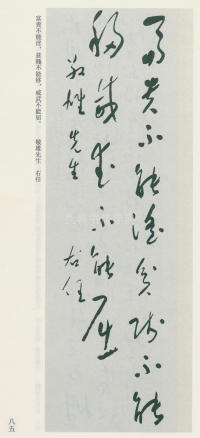 富贵不能淫贫贱不能
移威武不能屈
敬雄先生
右任
富贵不能淫，贫贱不能移，威武不能屈。 敬雄先生 右任
八五